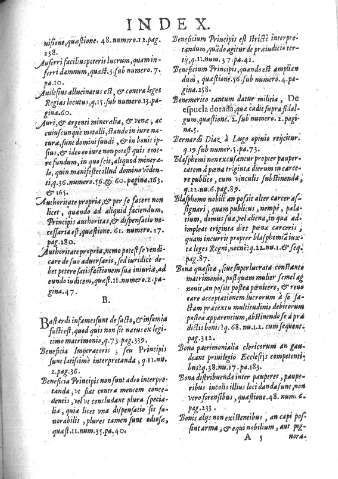 INDEX.
visione, quæstione. 48. numero. 12. pag.
238.
Auferri facilius poteris lucrum, quam in-
ferri damnum, quæst. 5. sub numero. 7.
pa. 10.
Auilesius allucinatus est, & contra leges
Regias locutus; q. 15. sub numero. 13. pa-
gina. 60.
Auri, & argenti mineralia, & venæ, ac
cuiuscunque metalli, stando in iure natu-
ra, sunt domini fundi, & in bonis ip-
sius, & ideo iure non potest quis extra-
re fundum, in quo scis, aliquod minera-
le, quin manifestet illud domino venden-
ti, q. 36. numero. 59. & 60. pagina. 163.
& 165.
Authoritate propria, & per se facere non
licet, quando ad aliquid faciendum,
Principis authoritas, & dispensatio ne-
cessaria est, quæstione. 61. numero. 17.
pag. 280.
Authoritate propria, nemo potest se vendi-
care de suo aduersario, sed iuridice de-
bet petere satisfactionem sua iniuria, ad
eundo iudicem, quæst. 11. numero. 2. pa-
gina. 47.
B.
Bastardi infames sunt de facto, & infamia
sufficit, quod quis non sit natus ex legi-
timo matrimonio, q. 73. pag. 339.
Beneficia Imperatoris, seu Principis
sunt latissimè interpretanda, q. 11. nu.
2. pag. 36.
Beneficia Principis non sunt adeo interpre-
tanda, vt fias contra mentem conce-
dentis, vel vt concludant plura specia-
lia, quia licet vna dispensatio sit fa-
uorabilis, plures tamen sunt odiosæ,
quæst. 11. num. 35. pa. 40.
Beneficium Principis est strictè interpre-
tandum, quãdo agitur de præiudicio ter-
tij, q. 11. num. 37. pa. 42.
Beneficium Principis, quando est amplian-
dum, quæstione. 56. sub numero. 4. pa-
gina. 258.
Benemerito tantum datur militia, De
espuela dorada, quæ cadit supra fidal-
gum, quæstione. 2. sub numero. 2. pagi-
na. 5.
Bernardi Diaz, à Lugo opinio reijcitur.
q. 19. sub numero. 5. pa. 73.
Blasphemi non excusantur propter pauper-
tatem à pœna triginta dierum in carce-
re publico, cum vinculis sustinenda,
q. 22. nu. 6. pag. 89.
Blasphemo nobili an possit alter carcer as-
signari, quam publicus, nempè, pala-
tium, domus sua, vel aliena, in qua ad-
impleat triginta dies pœna carceris,
quam incurrit propter blasphemiã iux-
ta leges Regni, necnè; q. 22. nu. 1. & seq.
pag. 87.
Bona quæsita, siue superlucrata constante
matrimonio, postquam mulier semel ag-
nouit, an possit postea pœnitere, & reuo-
care acceptationem lucrorum à se fa-
ctam præsenti multitudinis debitorum
postea apparentium, abstinendo se à præ
dictis bonis? q. 68. nu. 1. 2. cum sequent.
pag. 312.
Bona patrimonialia clericorum an gau-
deant priuilegio Ecclesijs competenti-
bus? q. 38. nu. 17. pa. 183.
Bona distribuenda inter pauperes, paupe-
ribus incolis illius loci danda sunt, non
vero forensibus, quæstione. 48. num. 6.
pag. 233.
Bonis alijs non existentibus, an capi pos-
sint arma, & equi nobilium, aut pig-
A 3 nora-